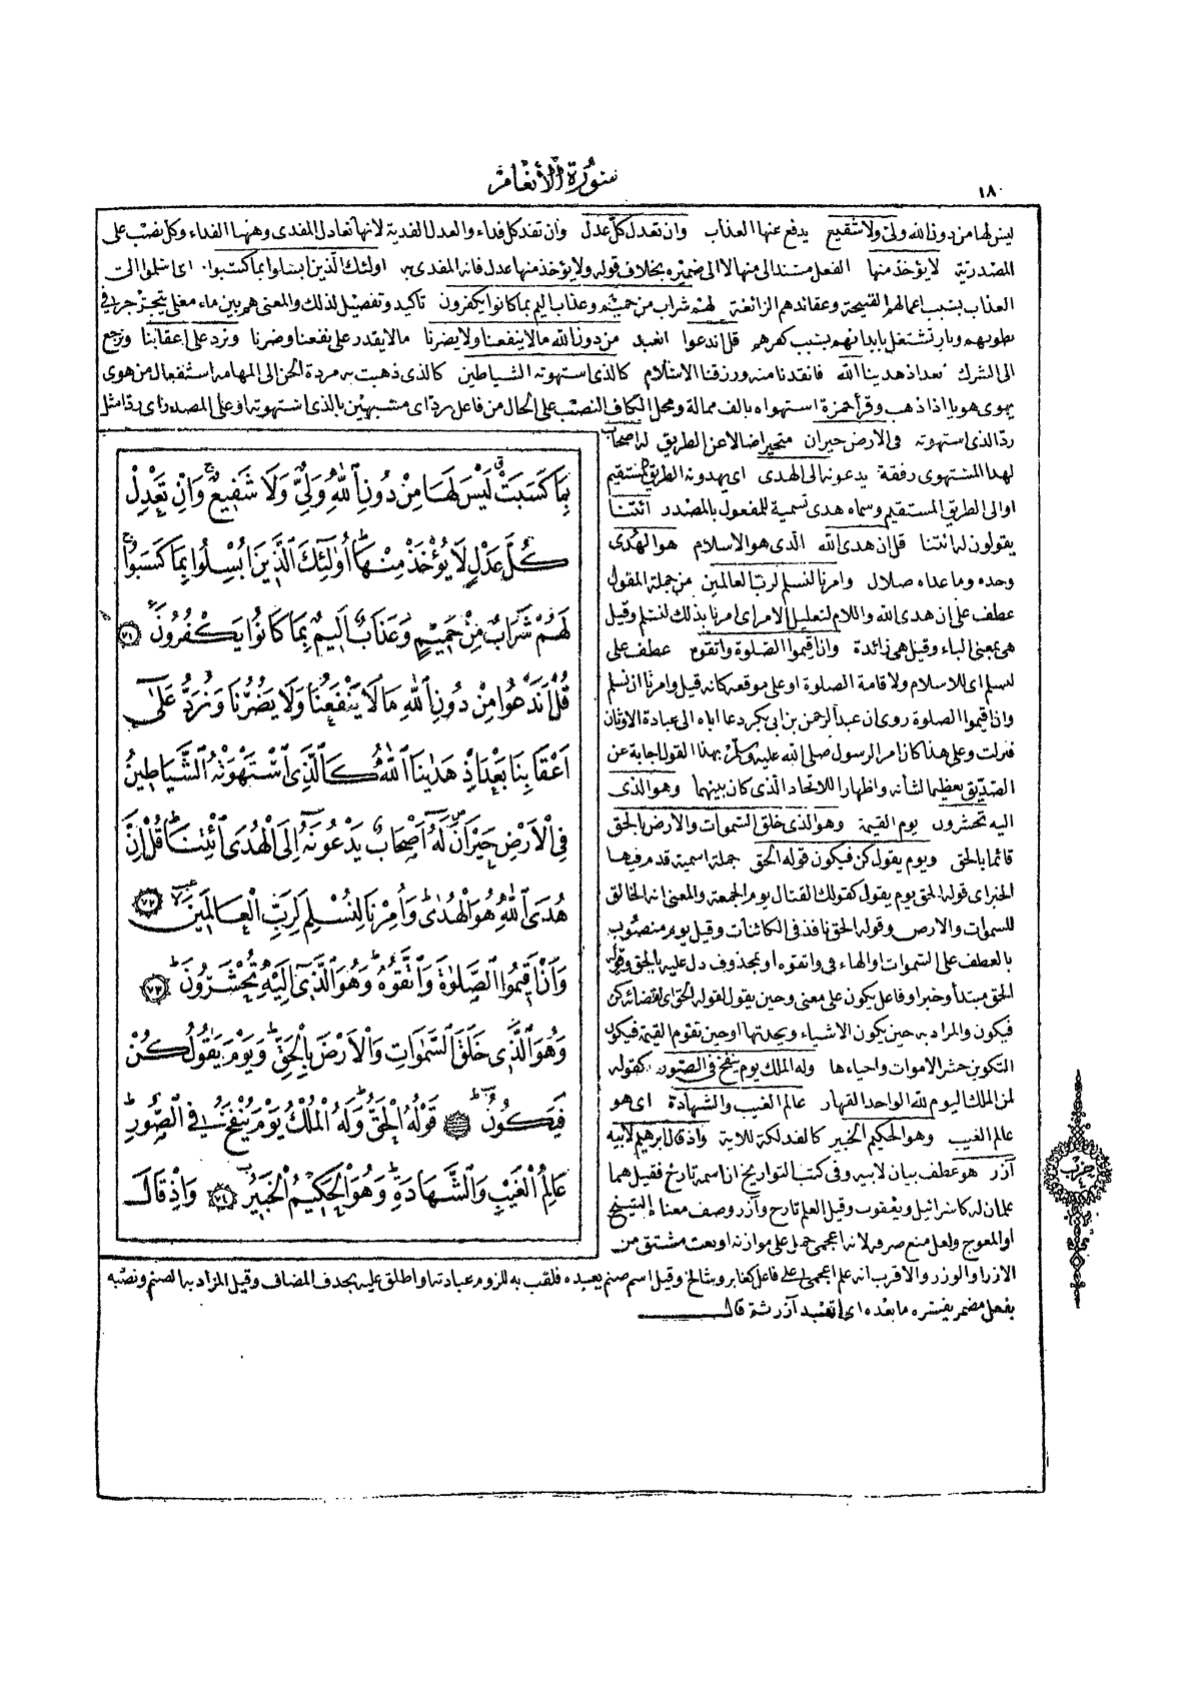 ١٨
سورة الأنعام
ليس لها من دون الله ولي ولا شفيع يدفع عنها العذاب وان تعدل كل عدل وان تفد كل فداء والعدل الفدية لانها تعادل المفدى وههنا الفداء وكل نصب على
المصدرية لا يؤخذ منها الفعل مسند الى منها لا الى ضميره بخلاف قوله ولا يؤخذ منها عدل فانه المفدى به اولئك الذين ابسلوا بما كسبوا اى سلموا الى
العذاب بسبب اعمالهم القبيحة وعقائدهم الزائغة لهم شراب من حميم وعذاب اليم بما كانوا يكفرون تأكيد وتفصيل لذلك والمعنى هم بين ماء مغلى يتجرجر فى
بطونهم ونار تشتعل بابدانهم بسبب كفرهم قل اندعوا انعبد من دون الله ما لا ينفعنا ولا يضرنا ما لا يقدر على نفعنا وضرنا ونرد على اعقابنا ونرجع
الى الشرك بعد اذ هدينا الله فانقذنا منه ورزقنا الاسلام كالذى استهوته الشياطين كالذى ذهبت به مردة الجن الى المهامه استفعال من هوى
يهوى هويا اذا ذهب وقرأ حمزة استهواه بالف ممالة ومحل الكاف النصب على الحال من فاعل نرد اى مشبهين بالذى استهوته او على المصدر اى ردا مثل
رد الذى استهوته فى الارض حيران متحيرا ضالا عن الطريق له اصحاب
لهذا المستهوى رفقة يدعونه الى الهدى اى يهدونه الطريق المستقيم
او الى الطريق المستقيم وسماه هدى تسمية للمفعول بالمصدر ائتنا
يقولون له ائتنا قل ان هدى الله الذى هو الاسلام هو الهدى
وحده وما عداه ضلال وامرنا لنسلم لرب العالمين من جملة المقول
عطف على ان هدى الله واللام لتعليل الامر اى امرنا بذلك لنسلم وقيل
هى بمعنى الباء وقيل هى زائدة وان اقيموا الصلوة واتقوه عطف على
لنسلم اى للاسلام ولاقامة الصلوة او على موقعه كانه قيل وامرنا ان نسلم
وان اقيموا الصلوة روى ان عبد الرحمن بن ابى بكر دعا اباه الى عبادة الاوثان
فنزلت وعلى هذا كان امر الرسول صلى الله عليه وسلم بهذا القول اجابة عن
الصديق تعظيما لشأنه واظهارا للاتحاد الذى كان بينهما وهو الذى
اليه تحشرون يوم القيمة وهو الذى خلق السموات والارض بالحق
قائما بالحق ويوم يقول كن فيكون قوله الحق جملة اسمية قدم فيها
الخبر اى قوله الحق يوم يقول كقولك القتال يوم الجمعة والمعنى انه الخالق
للسموات والارض وقوله الحق نافذ فى الكائنات وقيل يوم منصوب
بالعطف على السموات او الهاء فى واتقوه او بمحذوف دل عليه بالحق وقوله
الحق مبتدأ وخبر او فاعل يكون على معنى وحين يقول لقوله الحق اى لقضائه كن
فيكون والمراد به حين يكون الاشياء ويحدثها او حين تقوم القيمة فيكون
التكوين حشر الاموات واحياءها وله الملك يوم ينفخ فى الصور كقوله
لمن الملك اليوم لله الواحد القهار عالم الغيب والشهادة اى هو
عالم الغيب وهو الحكيم الخبير كالفذلكة للاية واذ قال ابرهيم لابيه
آزر هو عطف بيان لابيه وفى كتب التواريخ ان اسمه تارخ فقيل هما
علمان له كاسرائيل ويعقوب وقيل العلم تارح وآزر وصف معناه الشيخ
او المعوج ولعل منع صرفه لانه اعجمى حمل على موازنه او نعت مشتق من
الازر او الوزر والاقرب انه علم اعجمى على فاعل كعابر وشالخ وقيل اسم صنم يعبده فلقب به للزوم عبادته او اطلق عليه بحذف المضاف وقيل المراد به الصنم ونصبه
بفعل مضمر يفسره ما بعده اى اتعبد آزر ثم قال
بِمَا كَسَبَتْ لَيْسَ لَهَا مِنْ دُونِ اللّٰهِ وَلِيٌّ وَلَا شَفِيعٌ وَاِنْ تَعْدِلْ
كُلَّ عَدْلٍ لَا يُؤْخَذْ مِنْهَا اُولٰئِكَ الَّذِينَ اُبْسِلُوا بِمَا كَسَبُوا
لَهُمْ شَرَابٌ مِنْ حَمِيمٍ وَعَذَابٌ اَلِيمٌ بِمَا كَانُوا يَكْفُرُونَ ٧١
قُلْ اَنَدْعُوا مِنْ دُونِ اللّٰهِ مَا لَا يَنْفَعُنَا وَلَا يَضُرُّنَا وَنُرَدُّ عَلٰى
اَعْقَابِنَا بَعْدَ اِذْ هَدٰينَا اللّٰهُ كَالَّذِى اسْتَهْوَتْهُ الشَّيَاطِينُ
فِى الْاَرْضِ حَيْرَانَ لَهُ اَصْحَابٌ يَدْعُونَهُ اِلَى الْهُدَى ائْتِنَا قُلْ اِنَّ
هُدَى اللّٰهِ هُوَ الْهُدٰى وَاُمِرْنَا لِنُسْلِمَ لِرَبِّ الْعَالَمِينَ ٧٢
وَاَنْ اَقِيمُوا الصَّلٰوةَ وَاتَّقُوهُ وَهُوَ الَّذِى اِلَيْهِ تُحْشَرُونَ ٧٣
وَهُوَ الَّذِى خَلَقَ السَّمٰوَاتِ وَالْاَرْضَ بِالْحَقِّ وَيَوْمَ يَقُولُ كُنْ
فَيَكُونُ قَوْلُهُ الْحَقُّ وَلَهُ الْمُلْكُ يَوْمَ يُنْفَخُ فِى الصُّورِ
عَالِمُ الْغَيْبِ وَالشَّهَادَةِ وَهُوَ الْحَكِيمُ الْخَبِيرُ ٧٤ وَاِذْ قَالَ
حزب